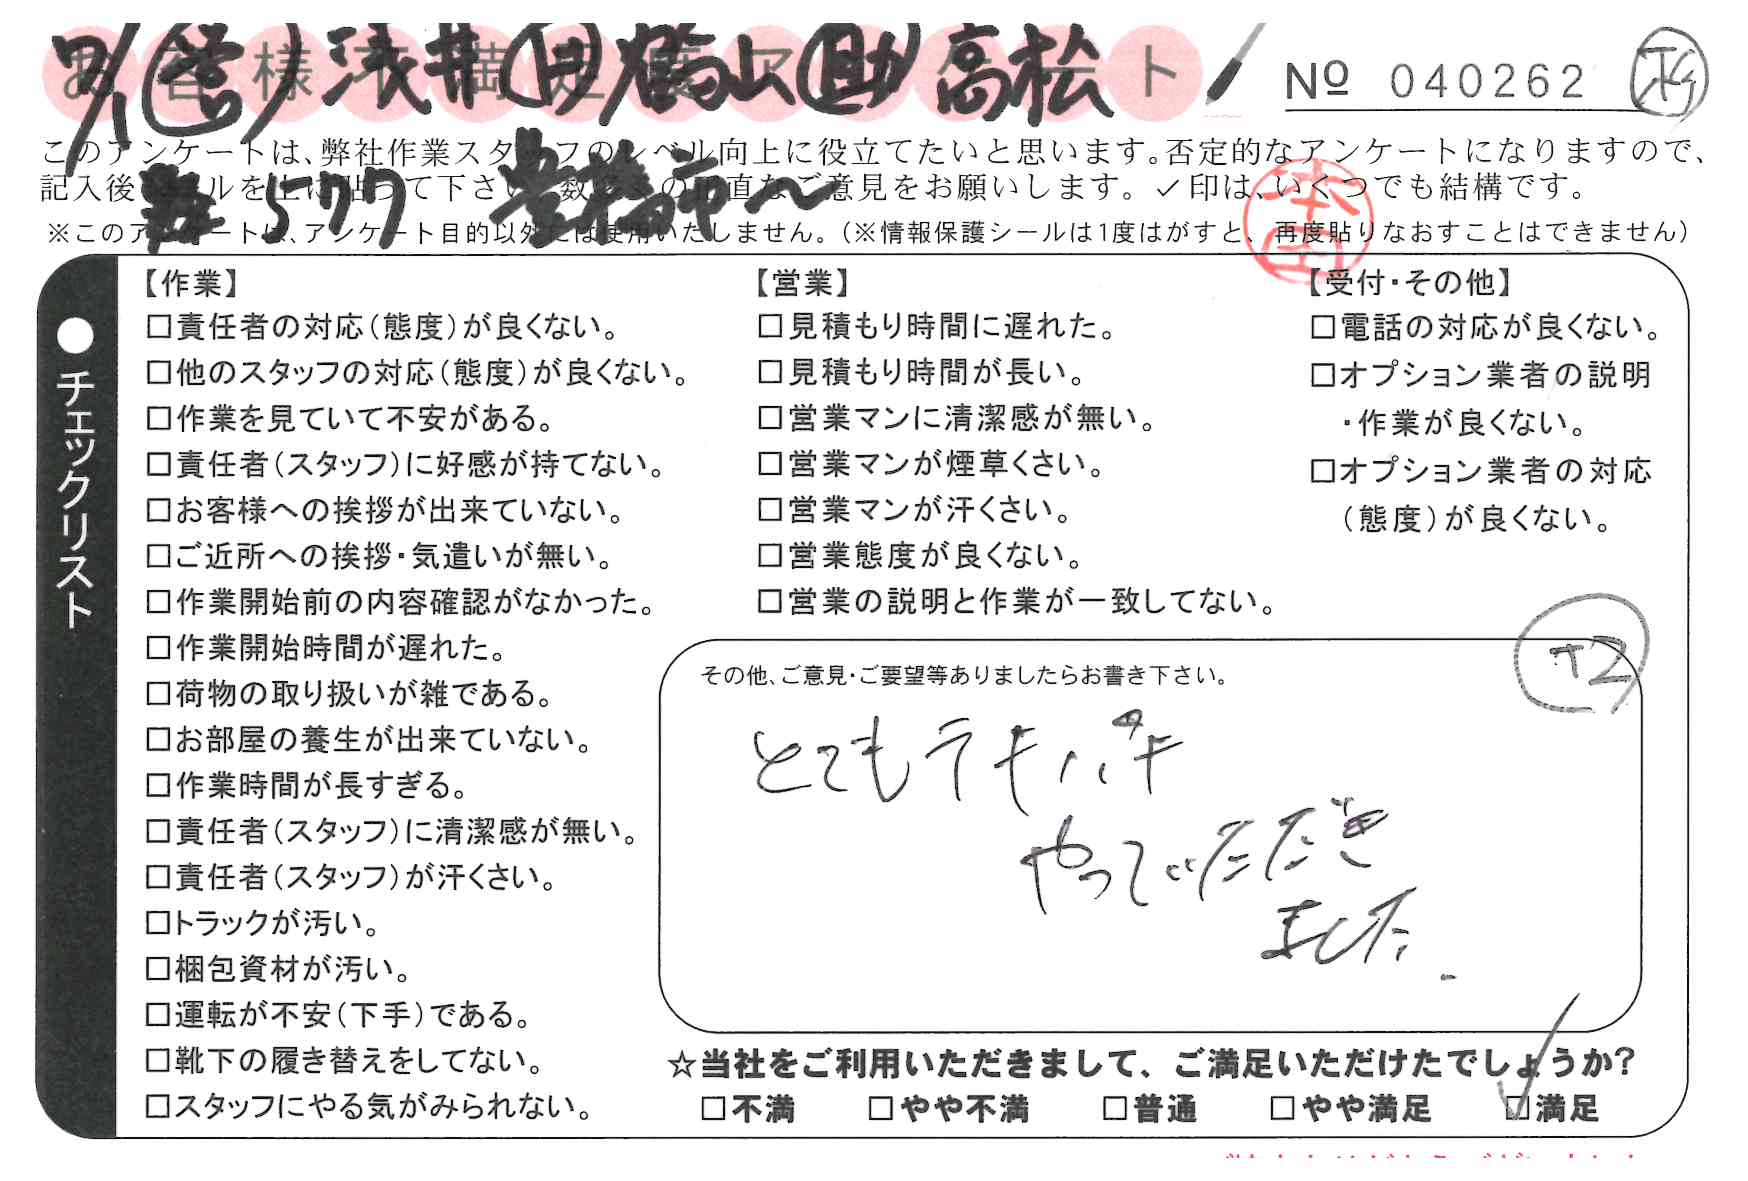 お客様不満足度アンケート
㊒浅井 鶴山 ㊙高松
No 040262
このアンケートは、弊社作業スタッフのレベル向上に役立てたいと思います。否定的なアンケートになりますので、
記入後シールを上に貼って下さい。数多くの正直なご意見をお願いします。✓印は、いくつでも結構です。
577 豊橋市〜
※このアンケートは、アンケート目的以外には使用いたしません。(※情報保護シールは1度はがすと、再度貼りなおすことはできません)
●チェックリスト
【作業】
□責任者の対応(態度)が良くない。
□他のスタッフの対応(態度)が良くない。
□作業を見ていて不安がある。
□責任者(スタッフ)に好感が持てない。
□お客様への挨拶が出来ていない。
□ご近所への挨拶・気遣いが無い。
□作業開始前の内容確認がなかった。
□作業開始時間が遅れた。
□荷物の取り扱いが雑である。
□お部屋の養生が出来ていない。
□作業時間が長すぎる。
□責任者(スタッフ)に清潔感が無い。
□責任者(スタッフ)が汗くさい。
□トラックが汚い。
□梱包資材が汚い。
□運転が不安(下手)である。
□靴下の履き替えをしてない。
□スタッフにやる気がみられない。
【営業】
□見積もり時間に遅れた。
□見積もり時間が長い。
□営業マンに清潔感が無い。
□営業マンが煙草くさい。
□営業マンが汗くさい。
□営業態度が良くない。
□営業の説明と作業が一致してない。
【受付・その他】
□電話の対応が良くない。
□オプション業者の説明
・作業が良くない。
□オプション業者の対応
(態度)が良くない。
+2
その他、ご意見・ご要望等ありましたらお書き下さい。
とてもテキパキ
やっていただき
ました.
☆当社をご利用いただきまして、ご満足いただけたでしょうか?
□不満 □やや不満 □普通 □やや満足 ☑満足